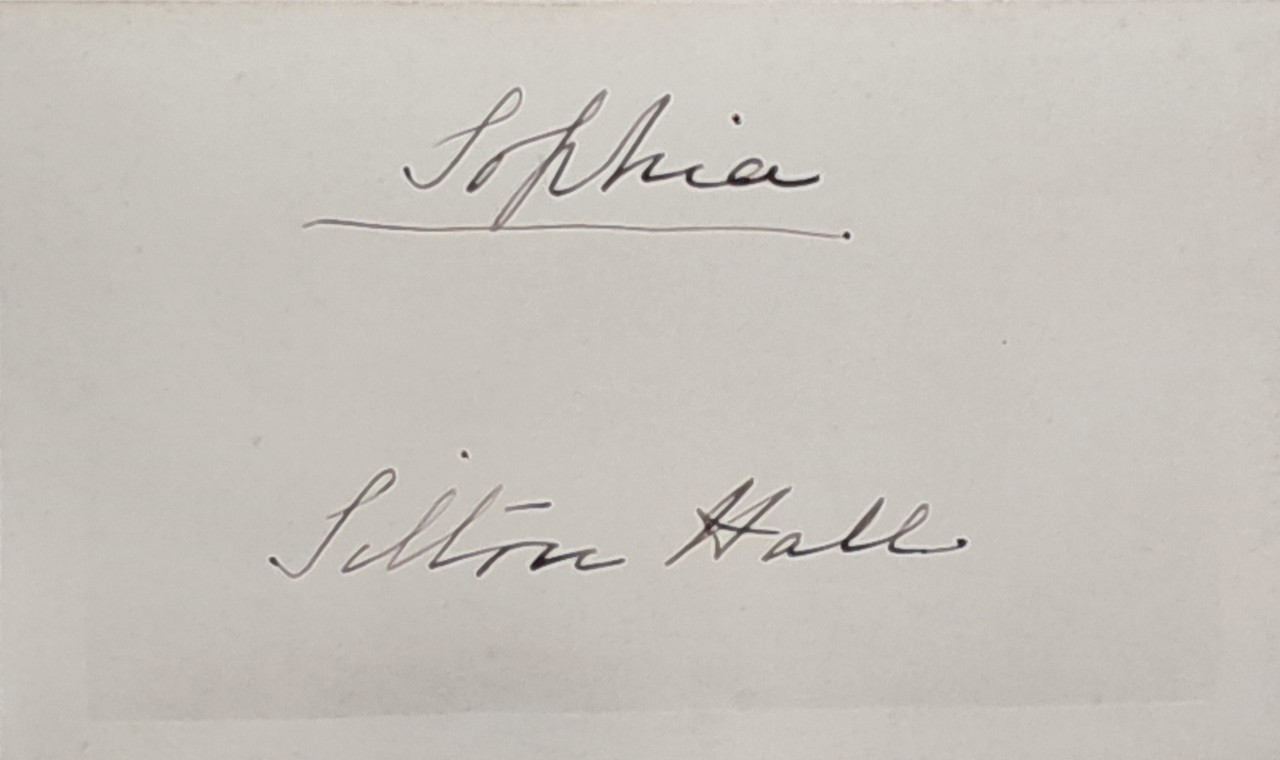 Sophia
Silton Hall